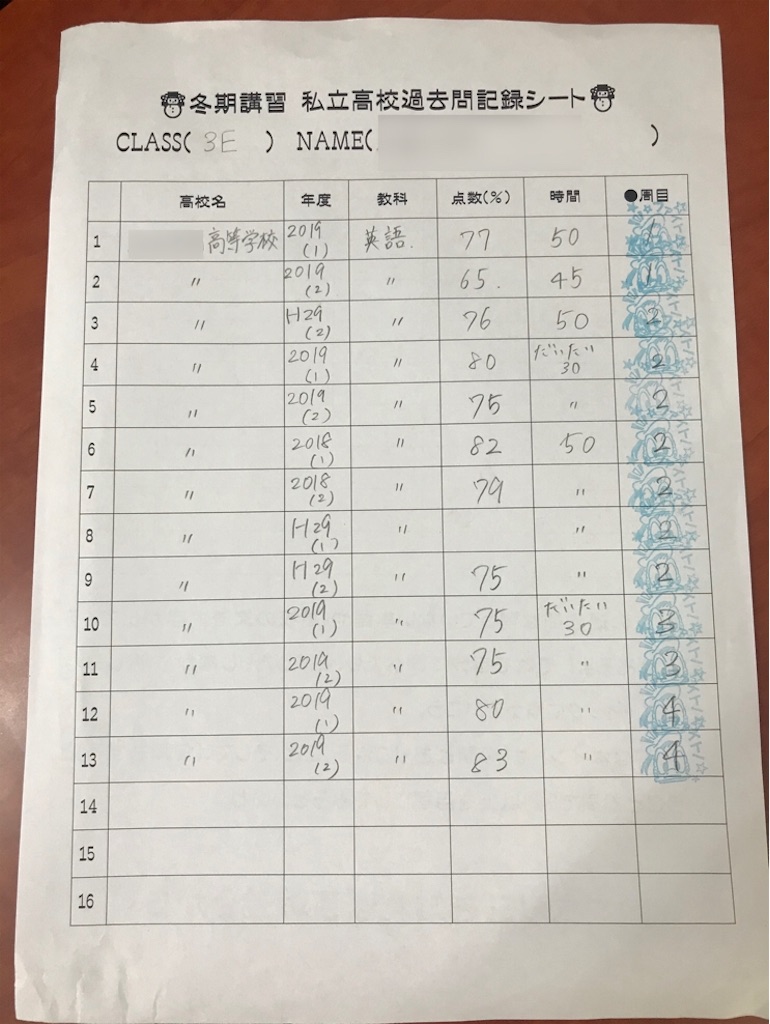 冬期講習 私立高校過去問記録シート
CLASS( 3E ) NAME( )
高校名 年度 教科 点数(%) 時間 ●周目
1 高等学校 2019(1) 英語. 77 50 1
2 〃 2019(2) 〃 65. 45 1
3 〃 H29(2) 〃 76 50 2
4 〃 2019(1) 〃 80 だいたい30 2
5 〃 2019(2) 〃 75 〃 2
6 〃 2018(1) 〃 82 50 2
7 〃 2018(2) 〃 79 〃 2
8 〃 H29(1) 〃 〃 2
9 〃 H29(2) 〃 75 〃 2
10 〃 2019(1) 〃 75 だいたい30 3
11 〃 2019(2) 〃 75 〃 3
12 〃 2019(1) 〃 80 〃 4
13 〃 2019(2) 〃 83 〃 4
14
15
16